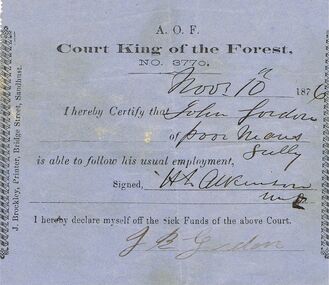 A. O. F.
Court King of the Forest,
NO. 3770.
Novr 10th 1876
I hereby Certify that John Gordon
of Poor Mans
Gully
is able to follow his usual employment,
Signed, H L Atkinson
I hereby declare myself off the Sick Funds of the above Court.
J B Gordon
J. Brockley, Printer, Bridge Street, Sandhurst.